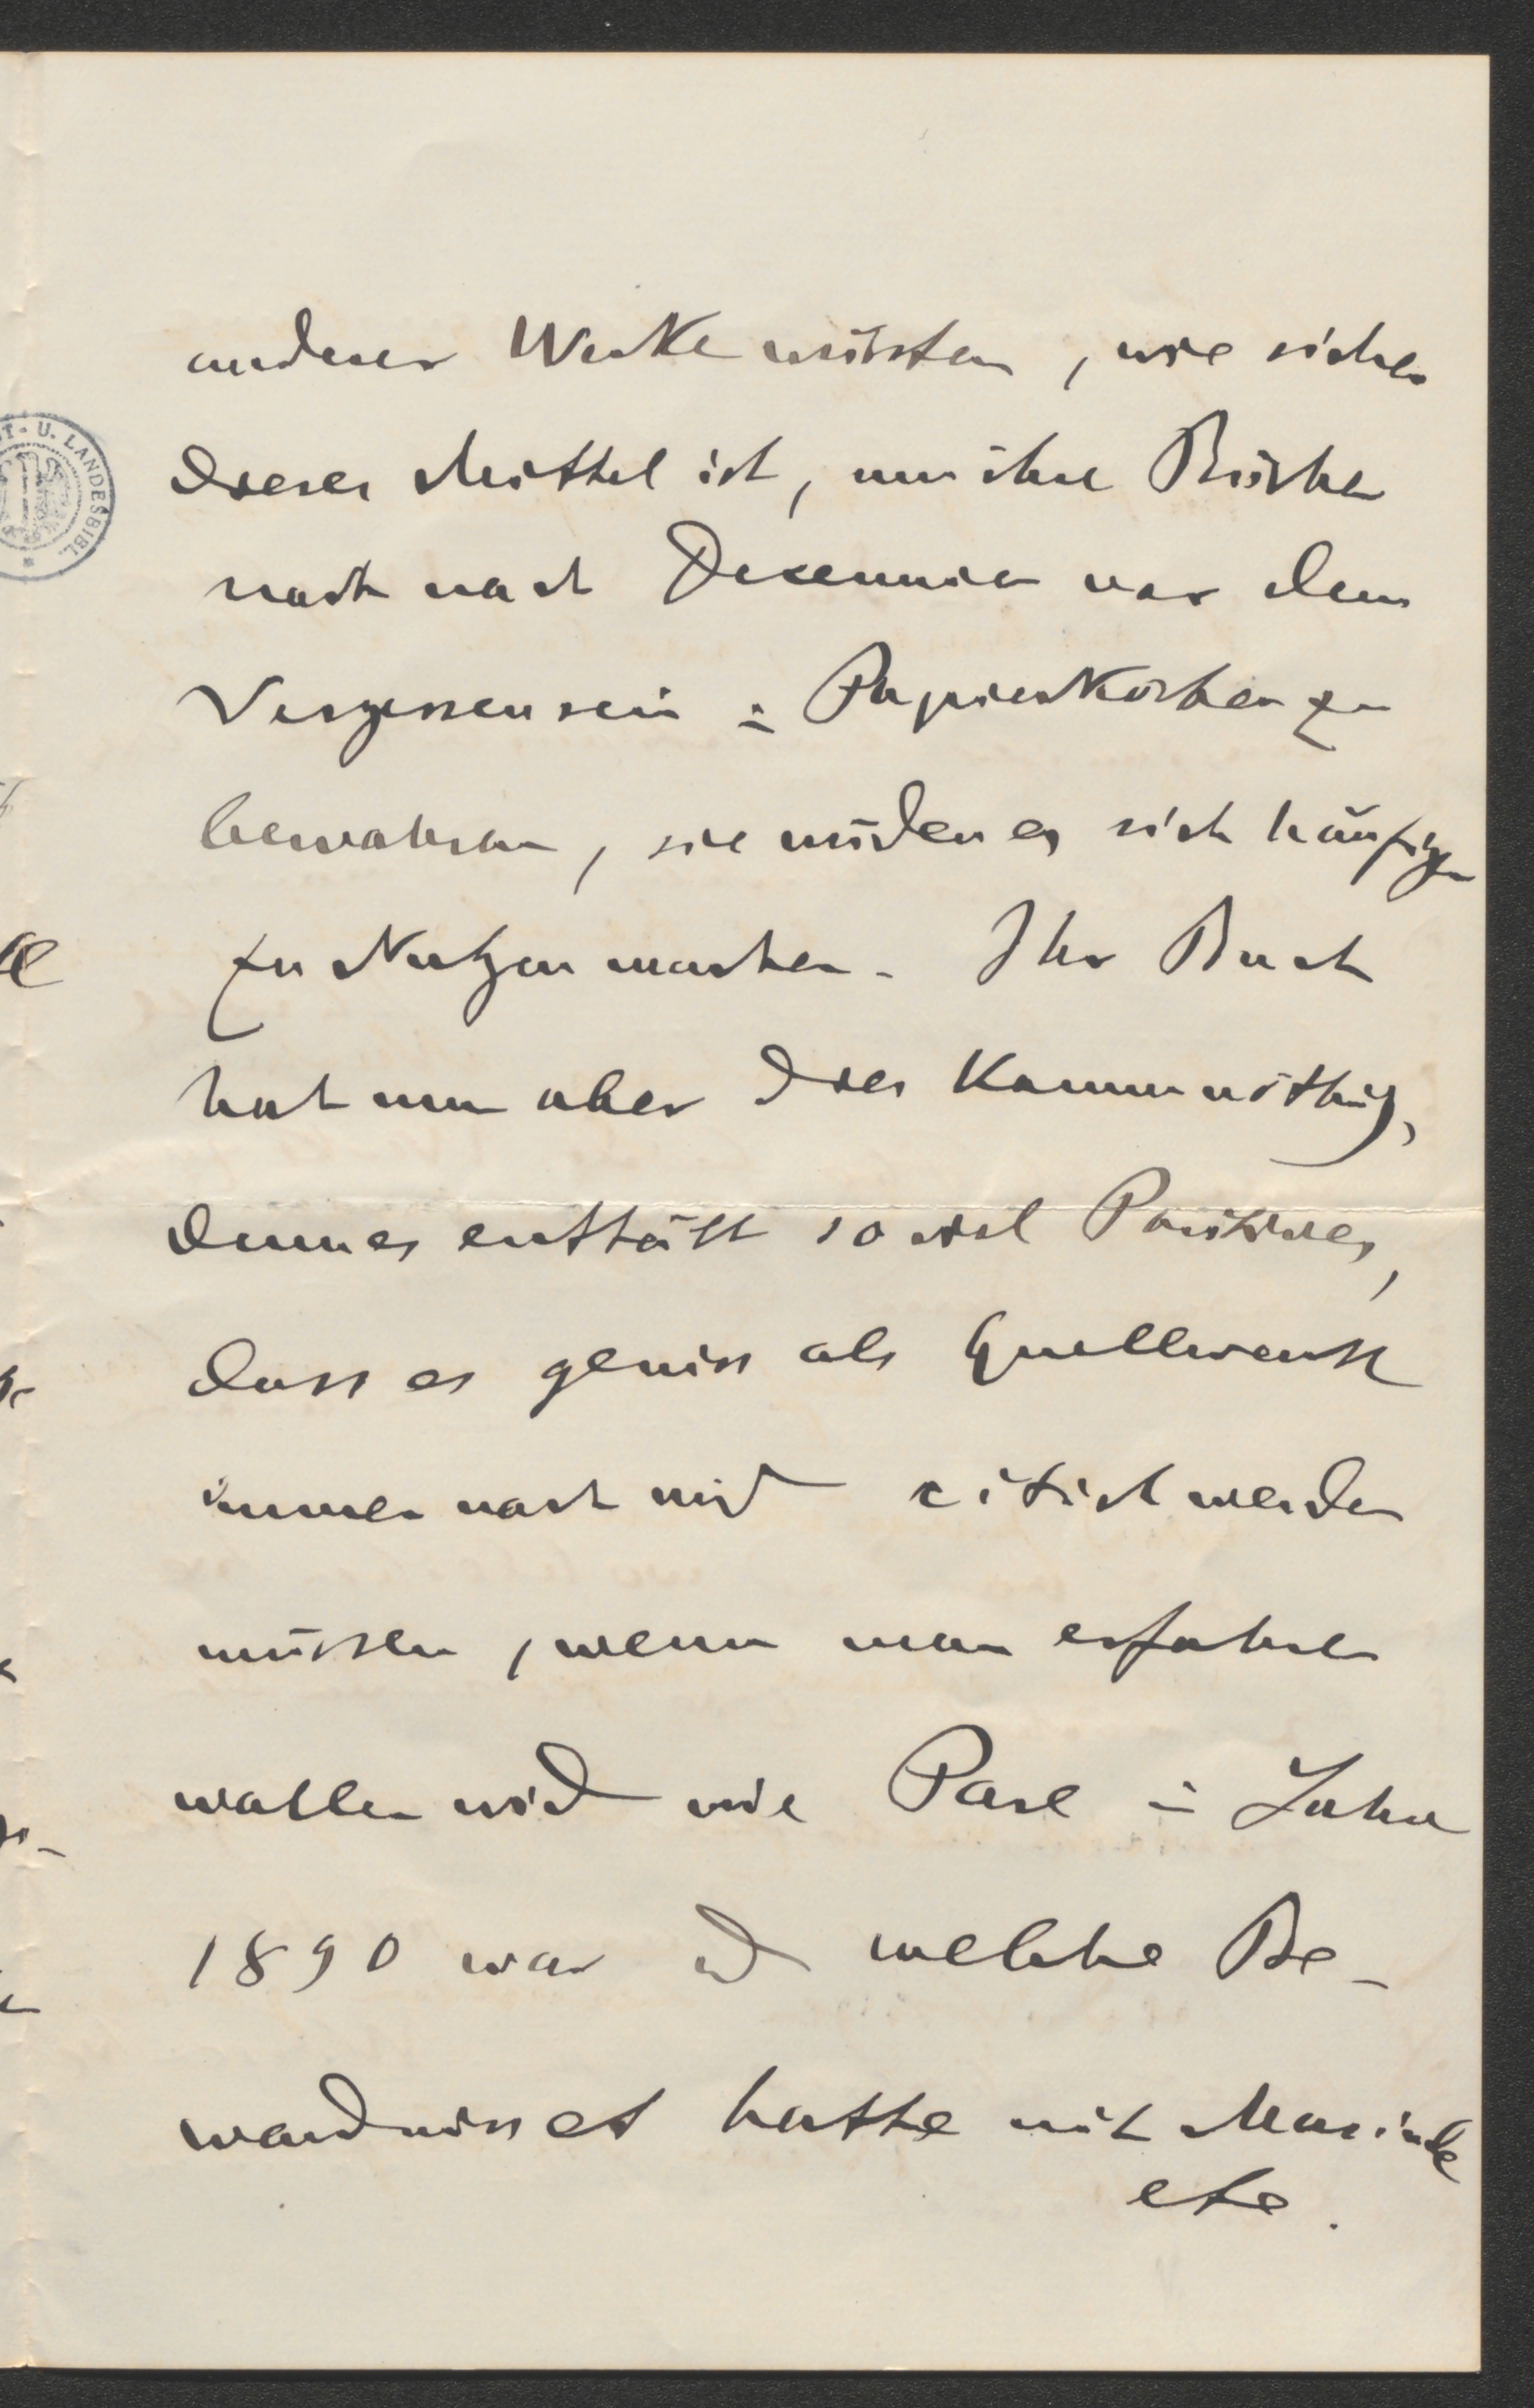 anderer Werke wüssten, wie sicher
dieses Mittel ist, um ihre Bücher
noch nach Decennien vor dem
Vergessensein = Papierkorbe zu
bewahren, sie würden es sich häufiger
zu Nutzen machen. Ihr Buch
hat nun aber dies kaum nöthig,
denn es enthält so viel Positives,
dass es gewiss als Quellwerk
immer noch wird citirt werden
müssen, wenn man erfahren
wollen wird wie Parl i Jahre
1890 war u welche Be-
wandniss es hatte mit
etc.
T- U. LANDESBIBL.